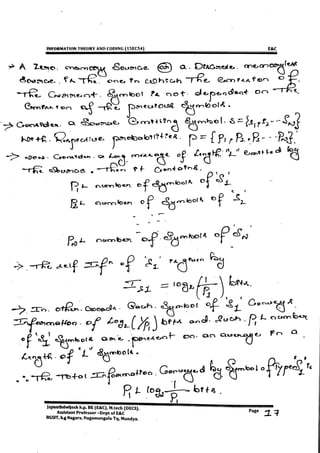 INFORMATION THEORY AND CODING (15EC54) E&C
→ A Zero memory Source (or) a Discrete memoryless
Source, is The one in which The emission of
The current symbol is not dependent on The
emission of The previous symbols.
→ Consider a Source emitting symbol S = {S1, S2, -- SN}
with respective probabilities p = {P1, P2, P3 -- PN}.
→ Now Consider a Long message of Length "L" emitted by
The Source. Then it Contains,
P1L number of symbols of S1
P2L number of symbols of S2
PNL number of symbols of SN
→ The self Infn of 'S1' is given by
IS1 = log2 (1/P1) bits.
→ In other words, each symbol of 'S1' Conveys
Information of Log2 (1/P1) bits and such P1L number
of 'S1' symbols are present on an average in a
Length of "L" symbols.
∴ The Total Information Conveyed by symbol of type S1 is
P1L log 1/P1 bits.
k.p, BE (E&C), M.tech (DECS).
Assistant Professor –Dept of E&C
BGSIT, b.g Nagara, Nagamangala Tq, Mandya.
Page 17